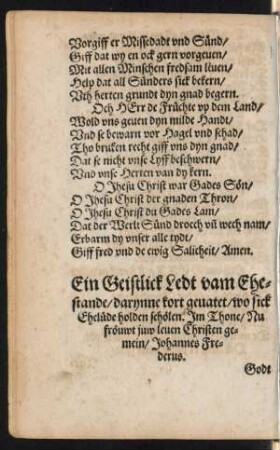 Vorgiff er Missedadt vnd Sünd/
Giff dat wy en ock gern vorgeuen/
Mit allen Minschen fredsam lëuen/
Help dat all Sünders sick bekern/
Vth herten grundt dyn gnad begern.
Och HErr de Früchte vp dem Land/
Wold vns geuen dyn milde Handt/
Vnd se bewarn vor Hagel vnd schad/
Tho bruken recht giff vns dyn gnad/
Dat se nicht vnse Lyff beschwern/
Vnd vnse Herten van dy kern.
O Jhesu Christ war Gades Sön/
O Jhesu Christ der gnaden Thron/
O Jhesu Christ du Gades Lam/
Dat der Werlt Sünd droech vñ wech nam/
Erbarm dy vnser alle tydt/
Giff fred vnd de ewig Salicheit/ Amen.
Ein Geistlick Ledt vam Ehe-
stande/ darynne kort geuatet/ wo sick
Ehelüde holden schölen. Im Thone/ Nu
fröuwt juw leuen Christen ge-
mein/ Johannes Fre-
derus.
Godt